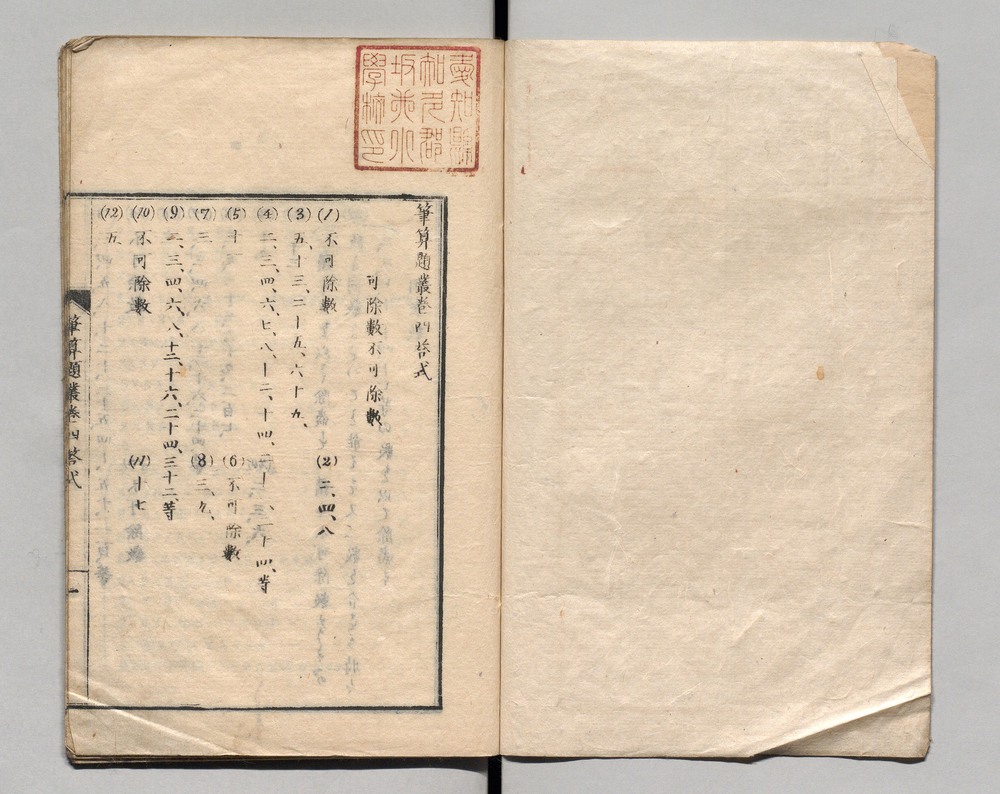 愛知縣
知多郡
坂井小
學校印
筆算題叢巻四答式
可除數不可除數
(1) 不可除數 (2) 二、四、八
(3) 五、十三、二十五、六十九、
(4) 二、三、四、六、七、八、十二、十四、二十一、二十四、等
(5) 十一 (6) 不可除數
(7) 三 (8) 三、九、
(9) 二、三、四、六、八、十二、十六、二十四、三十二、等
(10) 不可除數 (11) 十七
(12) 五、
筆算題叢巻四答式
一